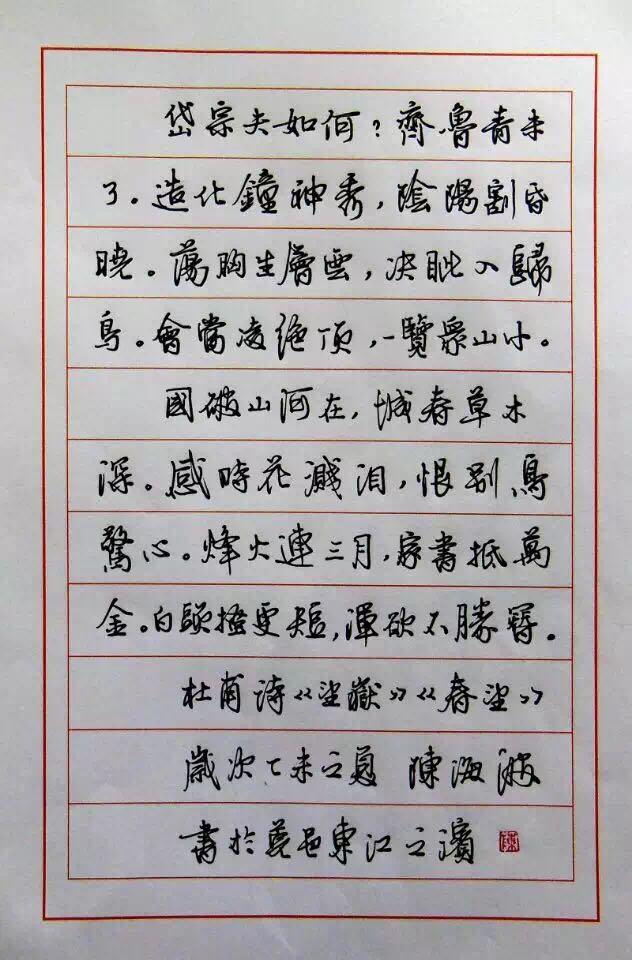 岱宗夫如何？齊魯青未
了。造化鐘神秀，陰陽割昏
曉。蕩胸生層雲，决眦入歸
鳥。會當凌絕頂，一覽眾山小。
國破山河在，城春草木
深。感時花濺泪，恨别鳥
驚心。烽火連三月，家書抵萬
金。白頭搔更短，渾欲不勝簪。
杜甫詩《望嶽》《春望》
歲次乙未之夏 陳海波
書於 邑東江之濱